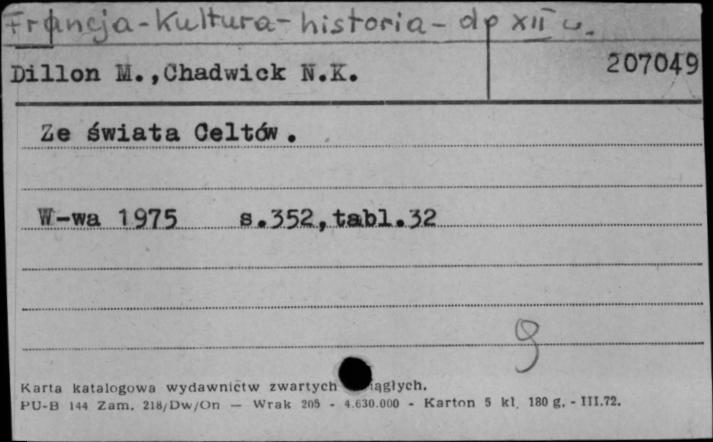 Francja - Kultura - historia - do XII w.
Dillon M.,Chadwick N.K. 207049
Ze świata Celtów.
W-wa 1975 s.352,tabl.32
Karta katalogowa wydawnictw zwartych ciągłych.
PU-B 144 Zam. 218/Dw/On — Wrak 205 - 4.630.000 - Karton 5 kl. 180 g. - III.72.